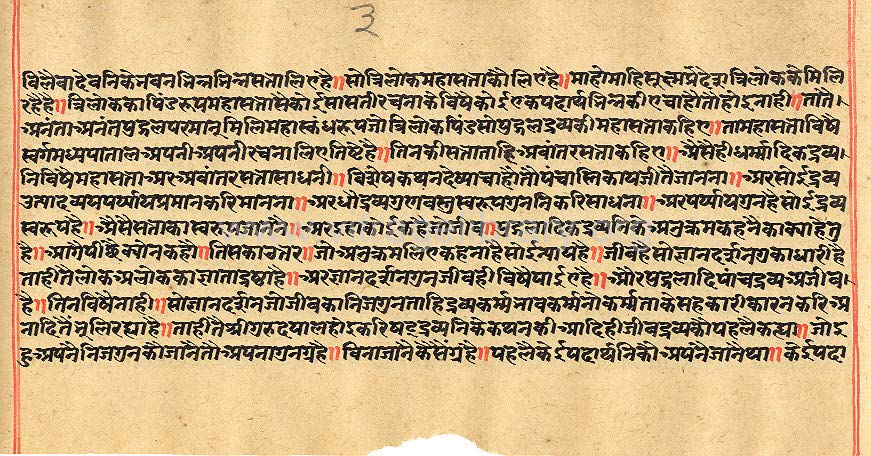 ३
विलैवादेवनिकेनवनभिन्नभिन्नसतालिएहै॥सोत्रिलोकमहासताकौलिएहै॥माहोमाहिसूक्ष्मप्रदेशत्रिलोककैमिलि
रहेहै॥त्रिलोककापिंडरूपमहासतासकोईसासतीरचनाकेविषैकोईएकपदार्थभिन्नकीएचाहौतौहोइनाही॥तातै।
अनंताअनंतपुद्गलपरमानुमिलिमहास्कंधरूपजोत्रिलोकपिंडसोपुद्गलद्रव्यकीमहासताकहिए॥तामहासताविषै
स्वर्गमध्यपातालअपनीअपनीरचनालिएतिष्टैहै॥तिनकीसतातांहिअवांतरसताकहिए॥अैसैहीधर्मादिकद्रव्य।
निविषैमहासताअरअवांतरसतासाधनी॥विशेषकथनदेष्याचाहौतौपंचास्तिकायजीतैजानना॥अरसोईद्रव्य
उत्पादव्ययपर्यायप्रमानकरिमानना॥अरध्रौव्यद्रव्यगुणवस्तुस्वरूपगुननिकरिसाधना॥अरपर्यायगुनहैसोईद्रव्य
स्वरूपहै॥अैसैसताकास्वरूपजाननै॥अरइहाकोईकहैजोजीव॥पुद्गलादिकद्रव्यनिके॥अनुक्रमकहनेकाक्याहेतु
है॥आगैपीछैक्योनकहौ॥तिसकाउतर॥जोअनुक्रमलिएकहनाहैसोईन्यायहै॥जीवहैसोज्ञानदर्शनगुनकाधारीहै
ताहीतैलोकअलोककाज्ञातादृष्टाहै॥अरज्ञानदर्शनगुनजीवहीविषैपाईएहै॥औरपुद्गलादिपांचद्रव्यअजीव।
है॥तिनविषैनाही॥सोज्ञानदर्शनजोजीवकानिजगुनताहिद्रव्यकर्मभावकर्मनोकर्मताकेसहकारीकारनकरिअ
नादितैंभूलिरह्याहै॥ताहीतैश्रीगुरुदयालहोइकरिषट्द्रव्यनिकेकथनकीआदिहीजीवद्रव्यकौपहलैकह्या॥जोइ
हुअपनैनिजगुनकौजानैतौअपनागुनग्रहै॥विनाजानैकैसैंग्रहै॥पहलैकेईपदार्थनिकौअपनैजानैथा॥केईपदा